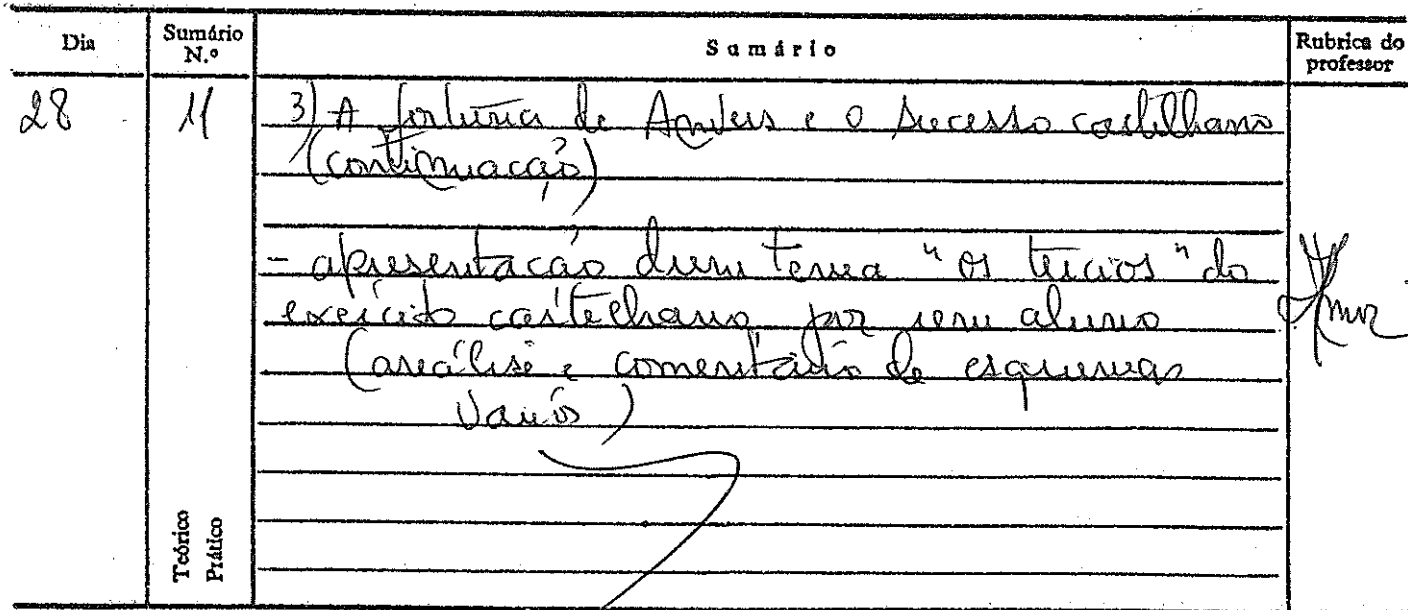 Dia
Sumário N.º
Sumário
Rubrica do professor
28
11
3) A fortuna de Antuérs e o sucesso castelhano
(continuação)
- apresentação dum tema "os tercios" do
exército castelhano por um aluno
(análise e comentário de esquemas
vários)
Teórico
Prático